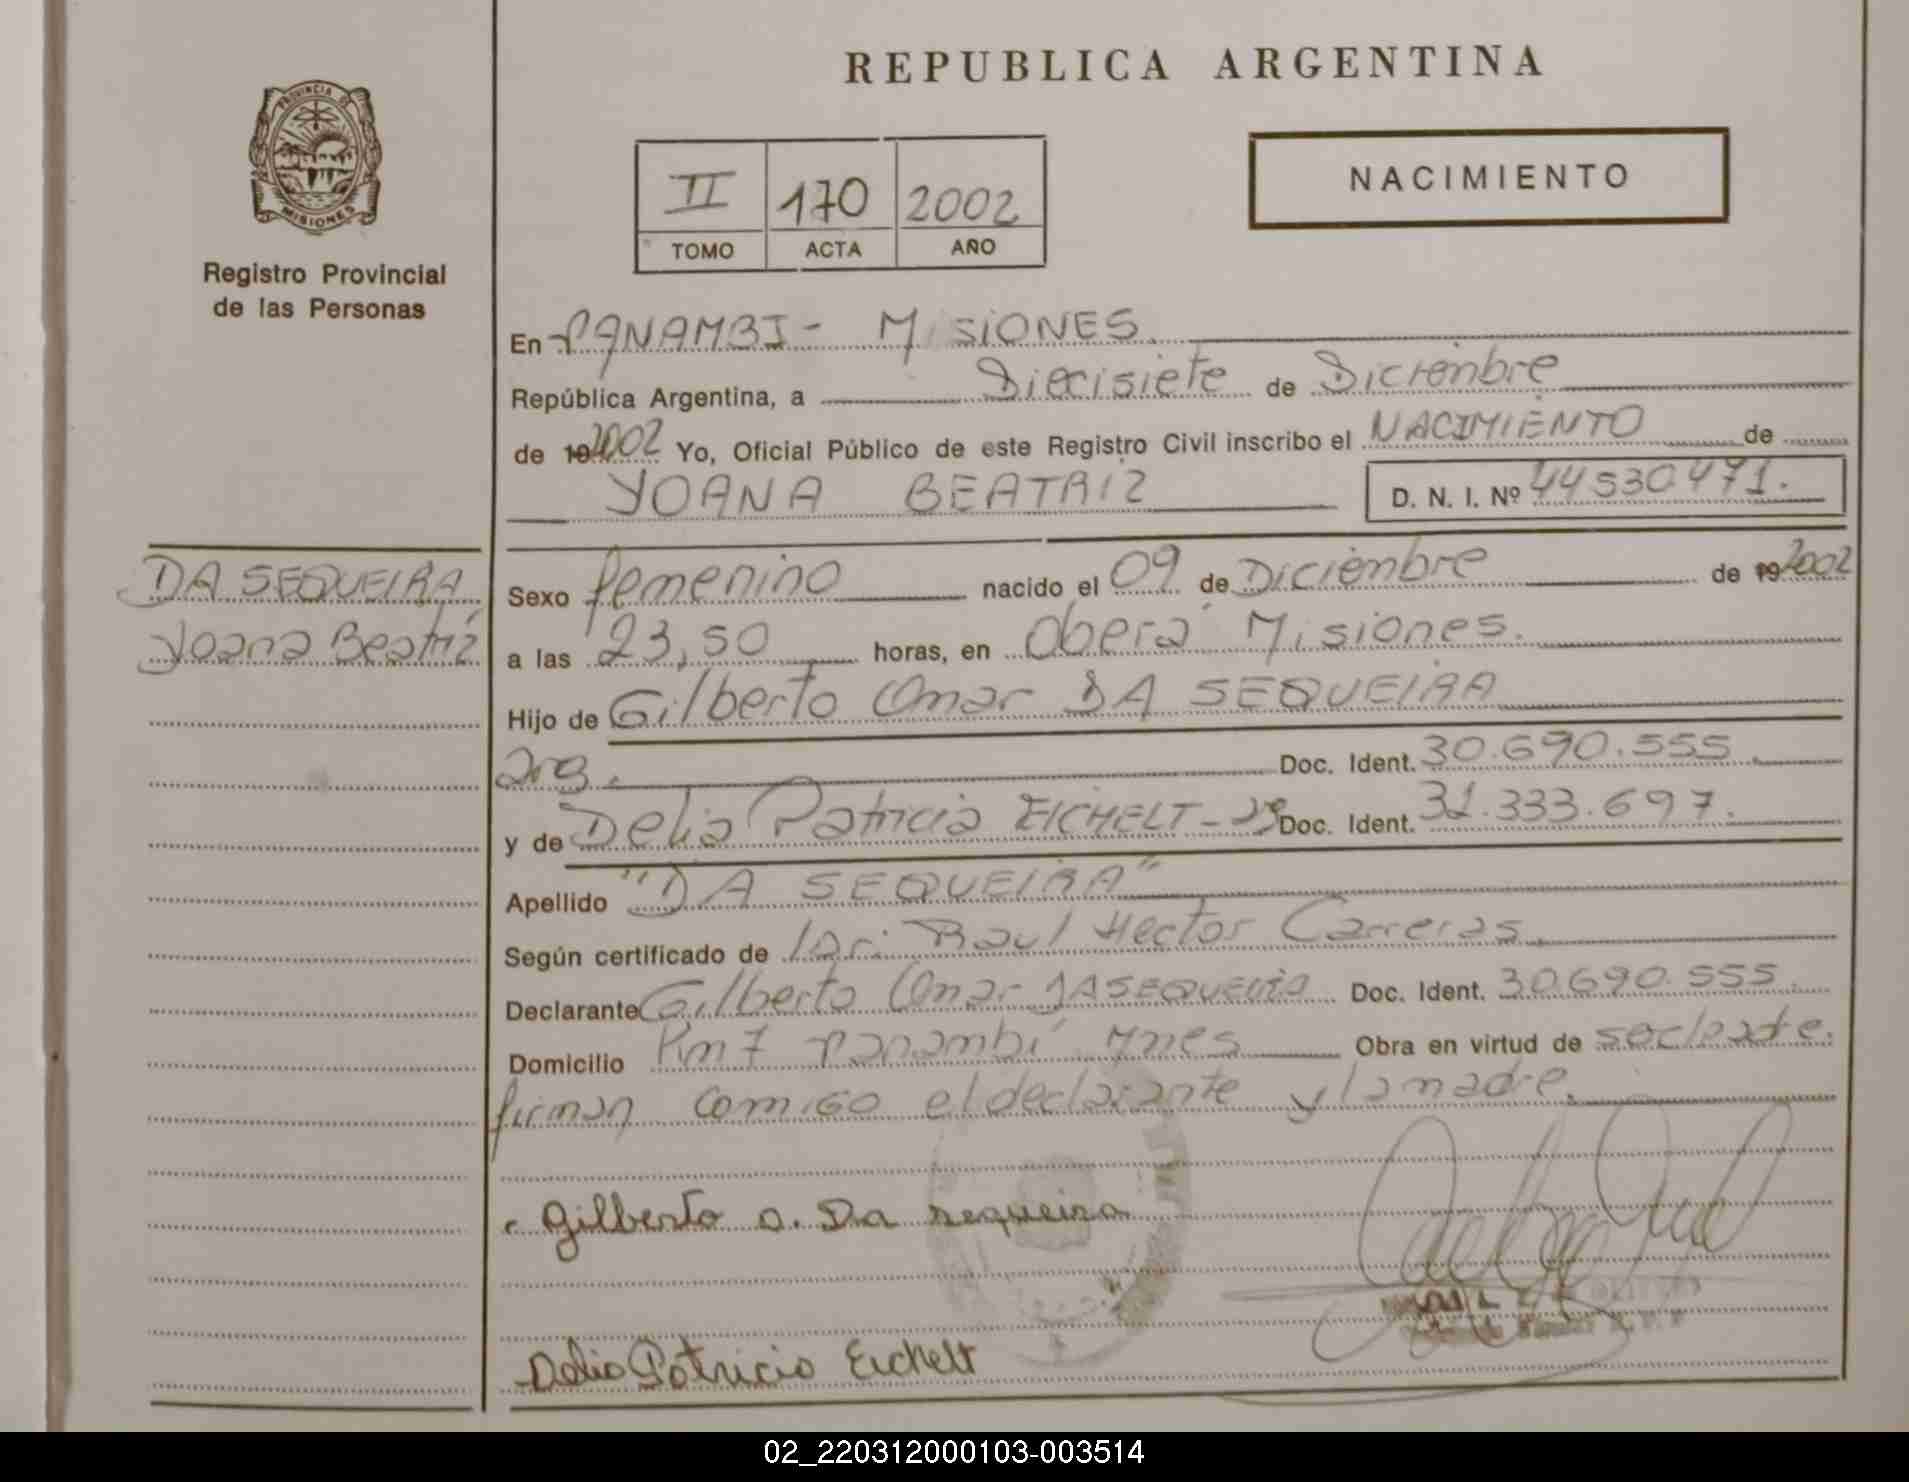 REPUBLICA ARGENTINA
PROVINCIA DE
MISIONES
Registro Provincial
de las Personas
II 170 2002
TOMO ACTA AÑO
NACIMIENTO
En PANAMBI - MISIONES.
República Argentina, a Diecisiete de Diciembre
de 19 2002 Yo, Oficial Público de este Registro Civil inscribo el NACIMIENTO de
YOANA BEATRIZ D. N. I. Nº 44530471.
DA SEQUEIRA
Yoana Beatriz
Sexo femenino nacido el 09 de Diciembre de 19 2002
a las 23,50 horas, en Oberá Misiones.
Hijo de Gilberto Omar DA SEQUEIRA
arg. Doc. Ident. 30.690.555
y de Delia Patricia EICHELT - Doc. Ident. 31.333.697.
Apellido "DA SEQUEIRA"
Según certificado de Raul Hector Carreras.
Declarante Gilberto Omar DASEQUEIRA Doc. Ident. 30.690.555.
Domicilio Km 7 Panambí Mnes Obra en virtud de
firman comigo el declarante y la madre.
Gilberto O. Da sequeira
Delia Patricia Eichelt
02_220312000103-003514